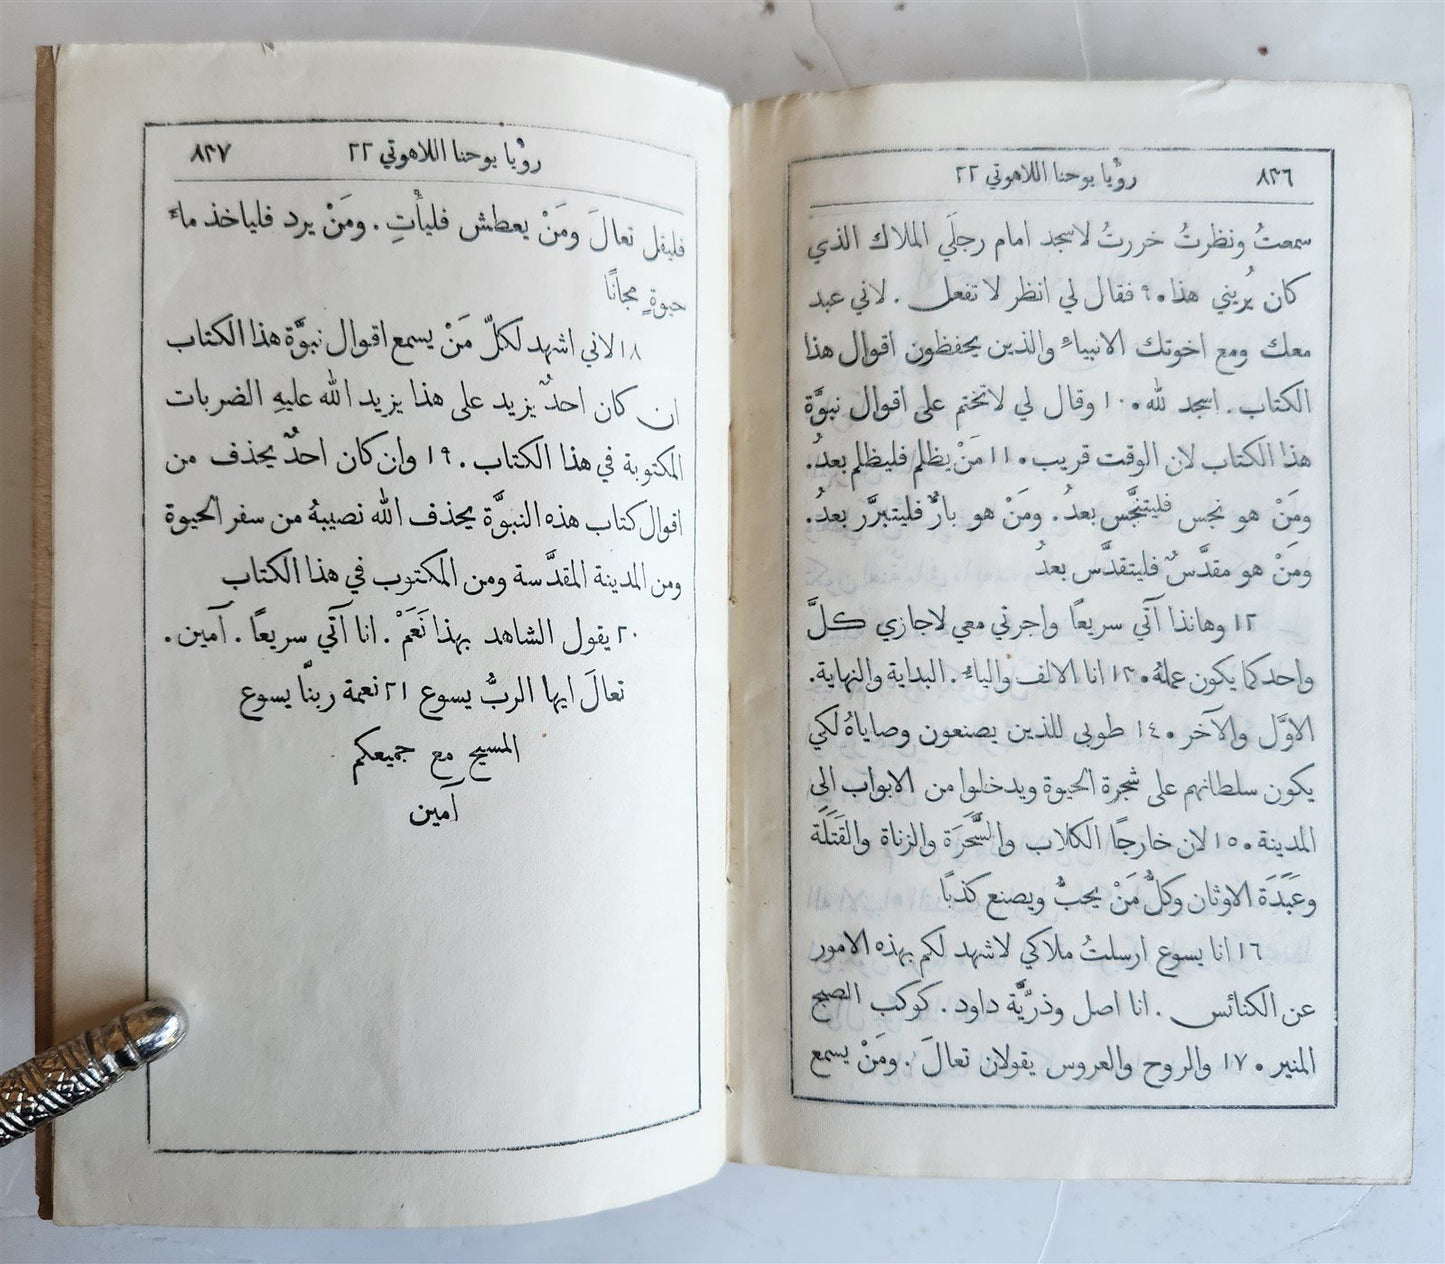 ٨٣٦ رؤيا يوحنا اللاهوتي ٢٢
سمعتُ ونظرتُ خررتُ لاسجد امام رجلَي الملاك الذي
كان يُريني هذا ٠ ٩ فقال لي انظر لا تفعل . لاني عبد
معك ومع اخوتك الانبياءِ والذين يحفظون اقوال هذا
الكتاب . اسجد لله ٠ ١٠ وقال لي لا تختم على اقوال نبوَّة
هذا الكتاب لان الوقت قريب ٠ ١١ مَنْ يظلم فليظلم بعدُ.
ومَنْ هو نجس فليتنجَّس بعدُ . ومَنْ هو بارٌّ فليتبرَّر بعدُ.
ومَنْ هو مقدَّسٌ فليتقدَّس بعدُ
١٢ وهانذا آتي سريعًا واجرتي معي لاجازي كلَّ
واحد كما يكون عملهُ ٠ ١٣ انا الالف والياءُ . البداية والنهاية.
الاوَّل والآخر ٠ ١٤ طوبى للذين يصنعون وصاياهُ لكي
يكون سلطانهم على شجرة الحيوة ويدخلوا من الابواب الى
المدينة ٠ ١٥ لان خارجًا الكلاب والسَّحَرَة والزناة والقَتَلَة
وعَبَدَة الاوثان وكلُّ مَنْ يحبُّ ويصنع كذبًا
١٦ انا يسوع ارسلتُ ملاكي لاشهد لكم بهذه الامور
عن الكنائس . انا اصل وذرّيَّة داود . كوكب الصبح
المنير ٠ ١٧ والروح والعروس يقولان تعالَ . ومَنْ يسمع
رؤيا يوحنا اللاهوتي ٢٢ ٨٣٧
فليقل تعالَ ومَنْ يعطش فليأْتِ . ومَنْ يرد فلياخذ ماءَ
حيوةٍ مجانًا
١٨ لاني اشهد لكلّ مَنْ يسمع اقوال نبوَّة هذا الكتاب
ان كان احدٌ يزيد على هذا يزيد الله عليهِ الضربات
المكتوبة في هذا الكتاب . ١٩ وان كان احدٌ يحذف من
اقوال كتاب هذه النبوَّة يحذف الله نصيبهُ من سفر الحيوة
ومن المدينة المقدَّسة ومن المكتوب في هذا الكتاب
٢٠ يقول الشاهد بهذا نَعَمْ . انا آتي سريعًا . آمين .
تعالَ ايها الربُّ يسوع ٢١ نعمة ربنّا يسوع
المسيح مع جميعكم
آمين